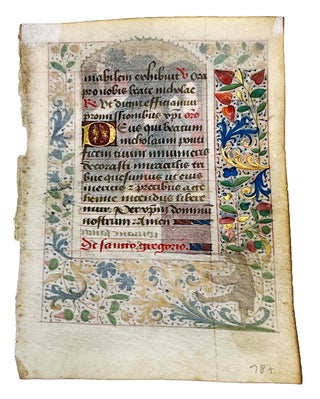 mabilem exhibuit V Ora
pro nobis beate nicholae
R Ut digni efficiamur
promissionibus xpi oro
Deus qui beatum
nicholaum ponti
ficem tuum innumeris
decorasti miraculis tri
bue quesumus ut eius
meritis et precibus a ge
henne incendiis libere
mur Per xpm dominu
nostrum Amen
De sancto gregorio
187